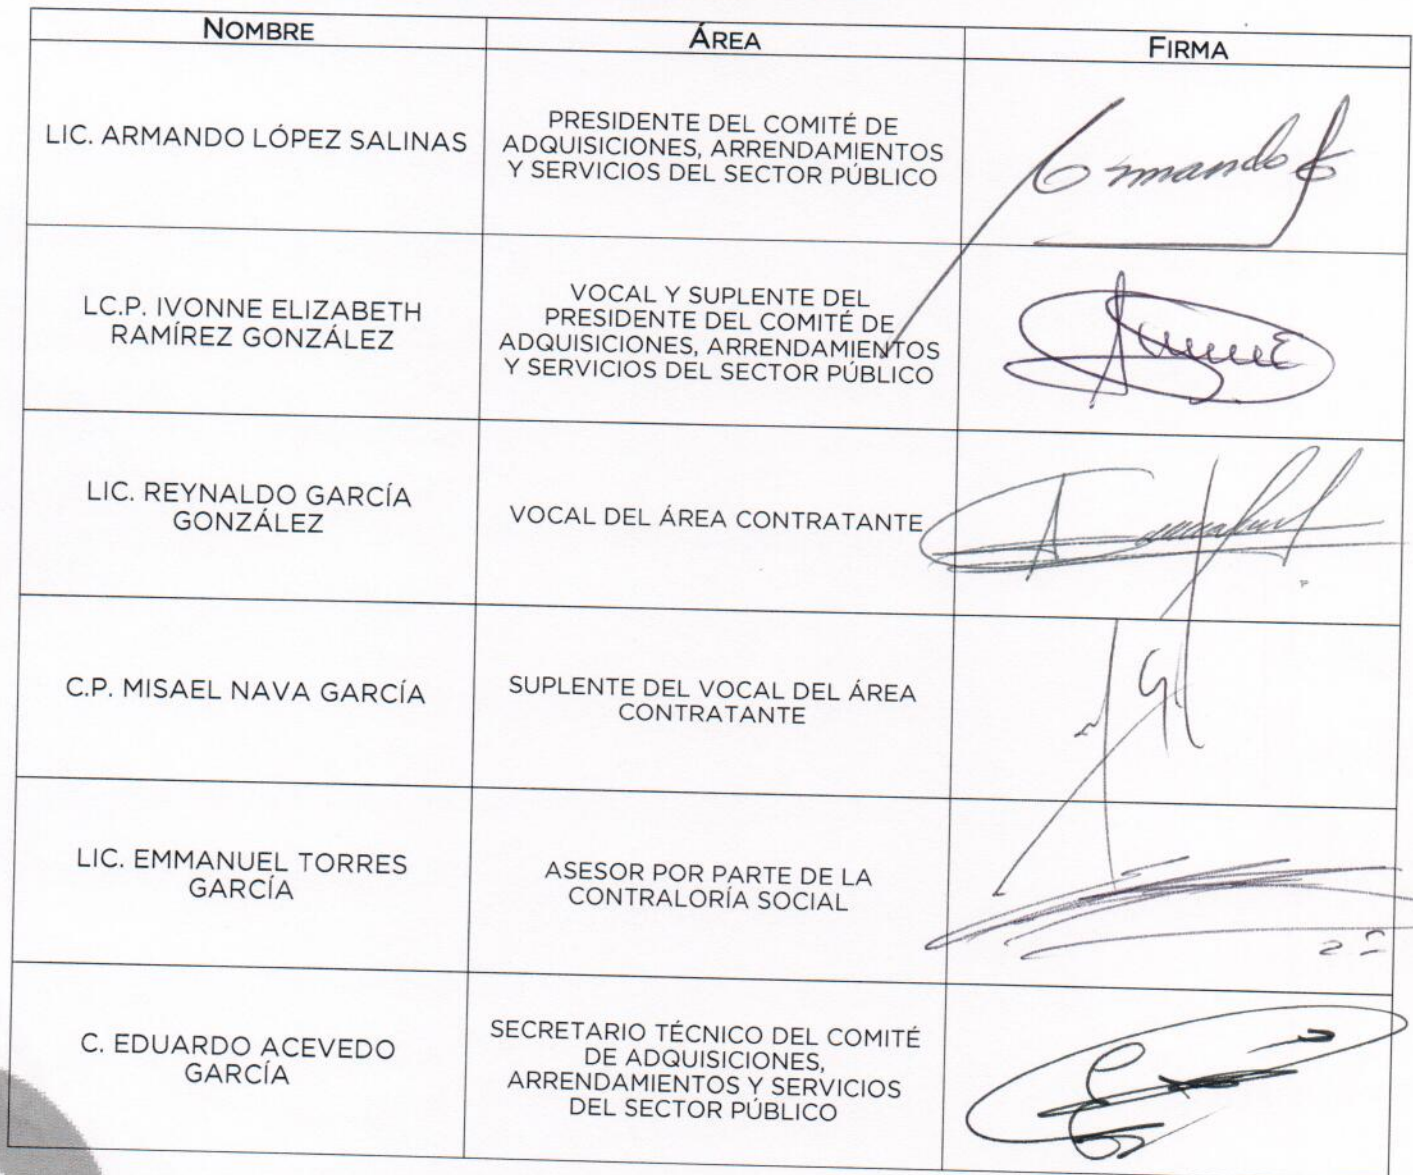 NOMBRE ÁREA FIRMA
LIC. ARMANDO LÓPEZ SALINAS
PRESIDENTE DEL COMITÉ DE
ADQUISICIONES, ARRENDAMIENTOS
Y SERVICIOS DEL SECTOR PÚBLICO
LC.P. IVONNE ELIZABETH
RAMÍREZ GONZÁLEZ
VOCAL Y SUPLENTE DEL
PRESIDENTE DEL COMITÉ DE
ADQUISICIONES, ARRENDAMIENTOS
Y SERVICIOS DEL SECTOR PÚBLICO
LIC. REYNALDO GARCÍA
GONZÁLEZ
VOCAL DEL ÁREA CONTRATANTE
C.P. MISAEL NAVA GARCÍA
SUPLENTE DEL VOCAL DEL ÁREA
CONTRATANTE
LIC. EMMANUEL TORRES
GARCÍA
ASESOR POR PARTE DE LA
CONTRALORÍA SOCIAL
C. EDUARDO ACEVEDO
GARCÍA
SECRETARIO TÉCNICO DEL COMITÉ
DE ADQUISICIONES,
ARRENDAMIENTOS Y SERVICIOS
DEL SECTOR PÚBLICO